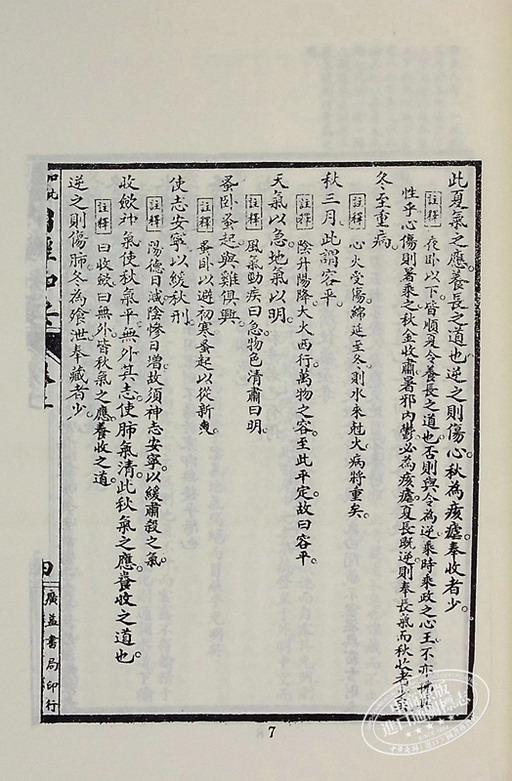 此夏氣之應。養長之道也。逆之則傷心。秋為痎瘧。奉收者少。
註釋 夜卧以下。皆順夏令養長之道也。否則與令為逆。乘時乘政之心王。不亦
性乎。心傷則暑乘之。秋金收肅。暑邪內鬱。必為痎瘧。夏長既逆。則奉長氣而秋收者少
冬至重病。
註釋 心火受傷。綿延至冬。則水來尅火。病將重矣。
秋三月。此謂容平。
註釋 陰升陽降。大火西行。萬物之容。至此平定。故曰容平。
天氣以急。地氣以明。
註釋 風氣勁疾曰急。物色清肅曰明。
蚤卧蚤起。與雞俱興。
註釋 蚤卧以避初寒。蚤起以從新爽。
使志安寧。以緩秋刑。
註釋 陽德日減。陰慘日增。故須神志安寧。以緩肅殺之氣。
收斂神氣。使秋氣平。無外其志。使肺氣清。此秋氣之應。養收之道也。
註釋 曰收斂。曰無外。皆秋氣之應。養收之道。
逆之則傷肺。冬為飧泄。奉藏者少。
廣益書局印行
7